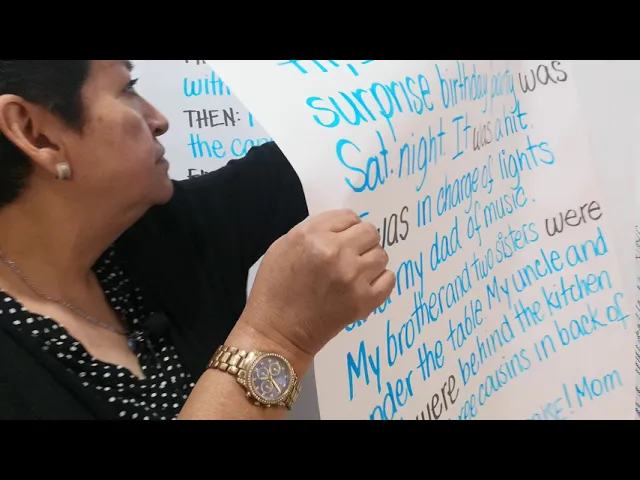 with
THEN:
the car
surprise birthday party was
Sat. night. It was a hit.
was in charge of lights
my dad of music.
My brother and two sisters were
under the table. My uncle and
were behind the kitchen
cousins in back of
! Mom